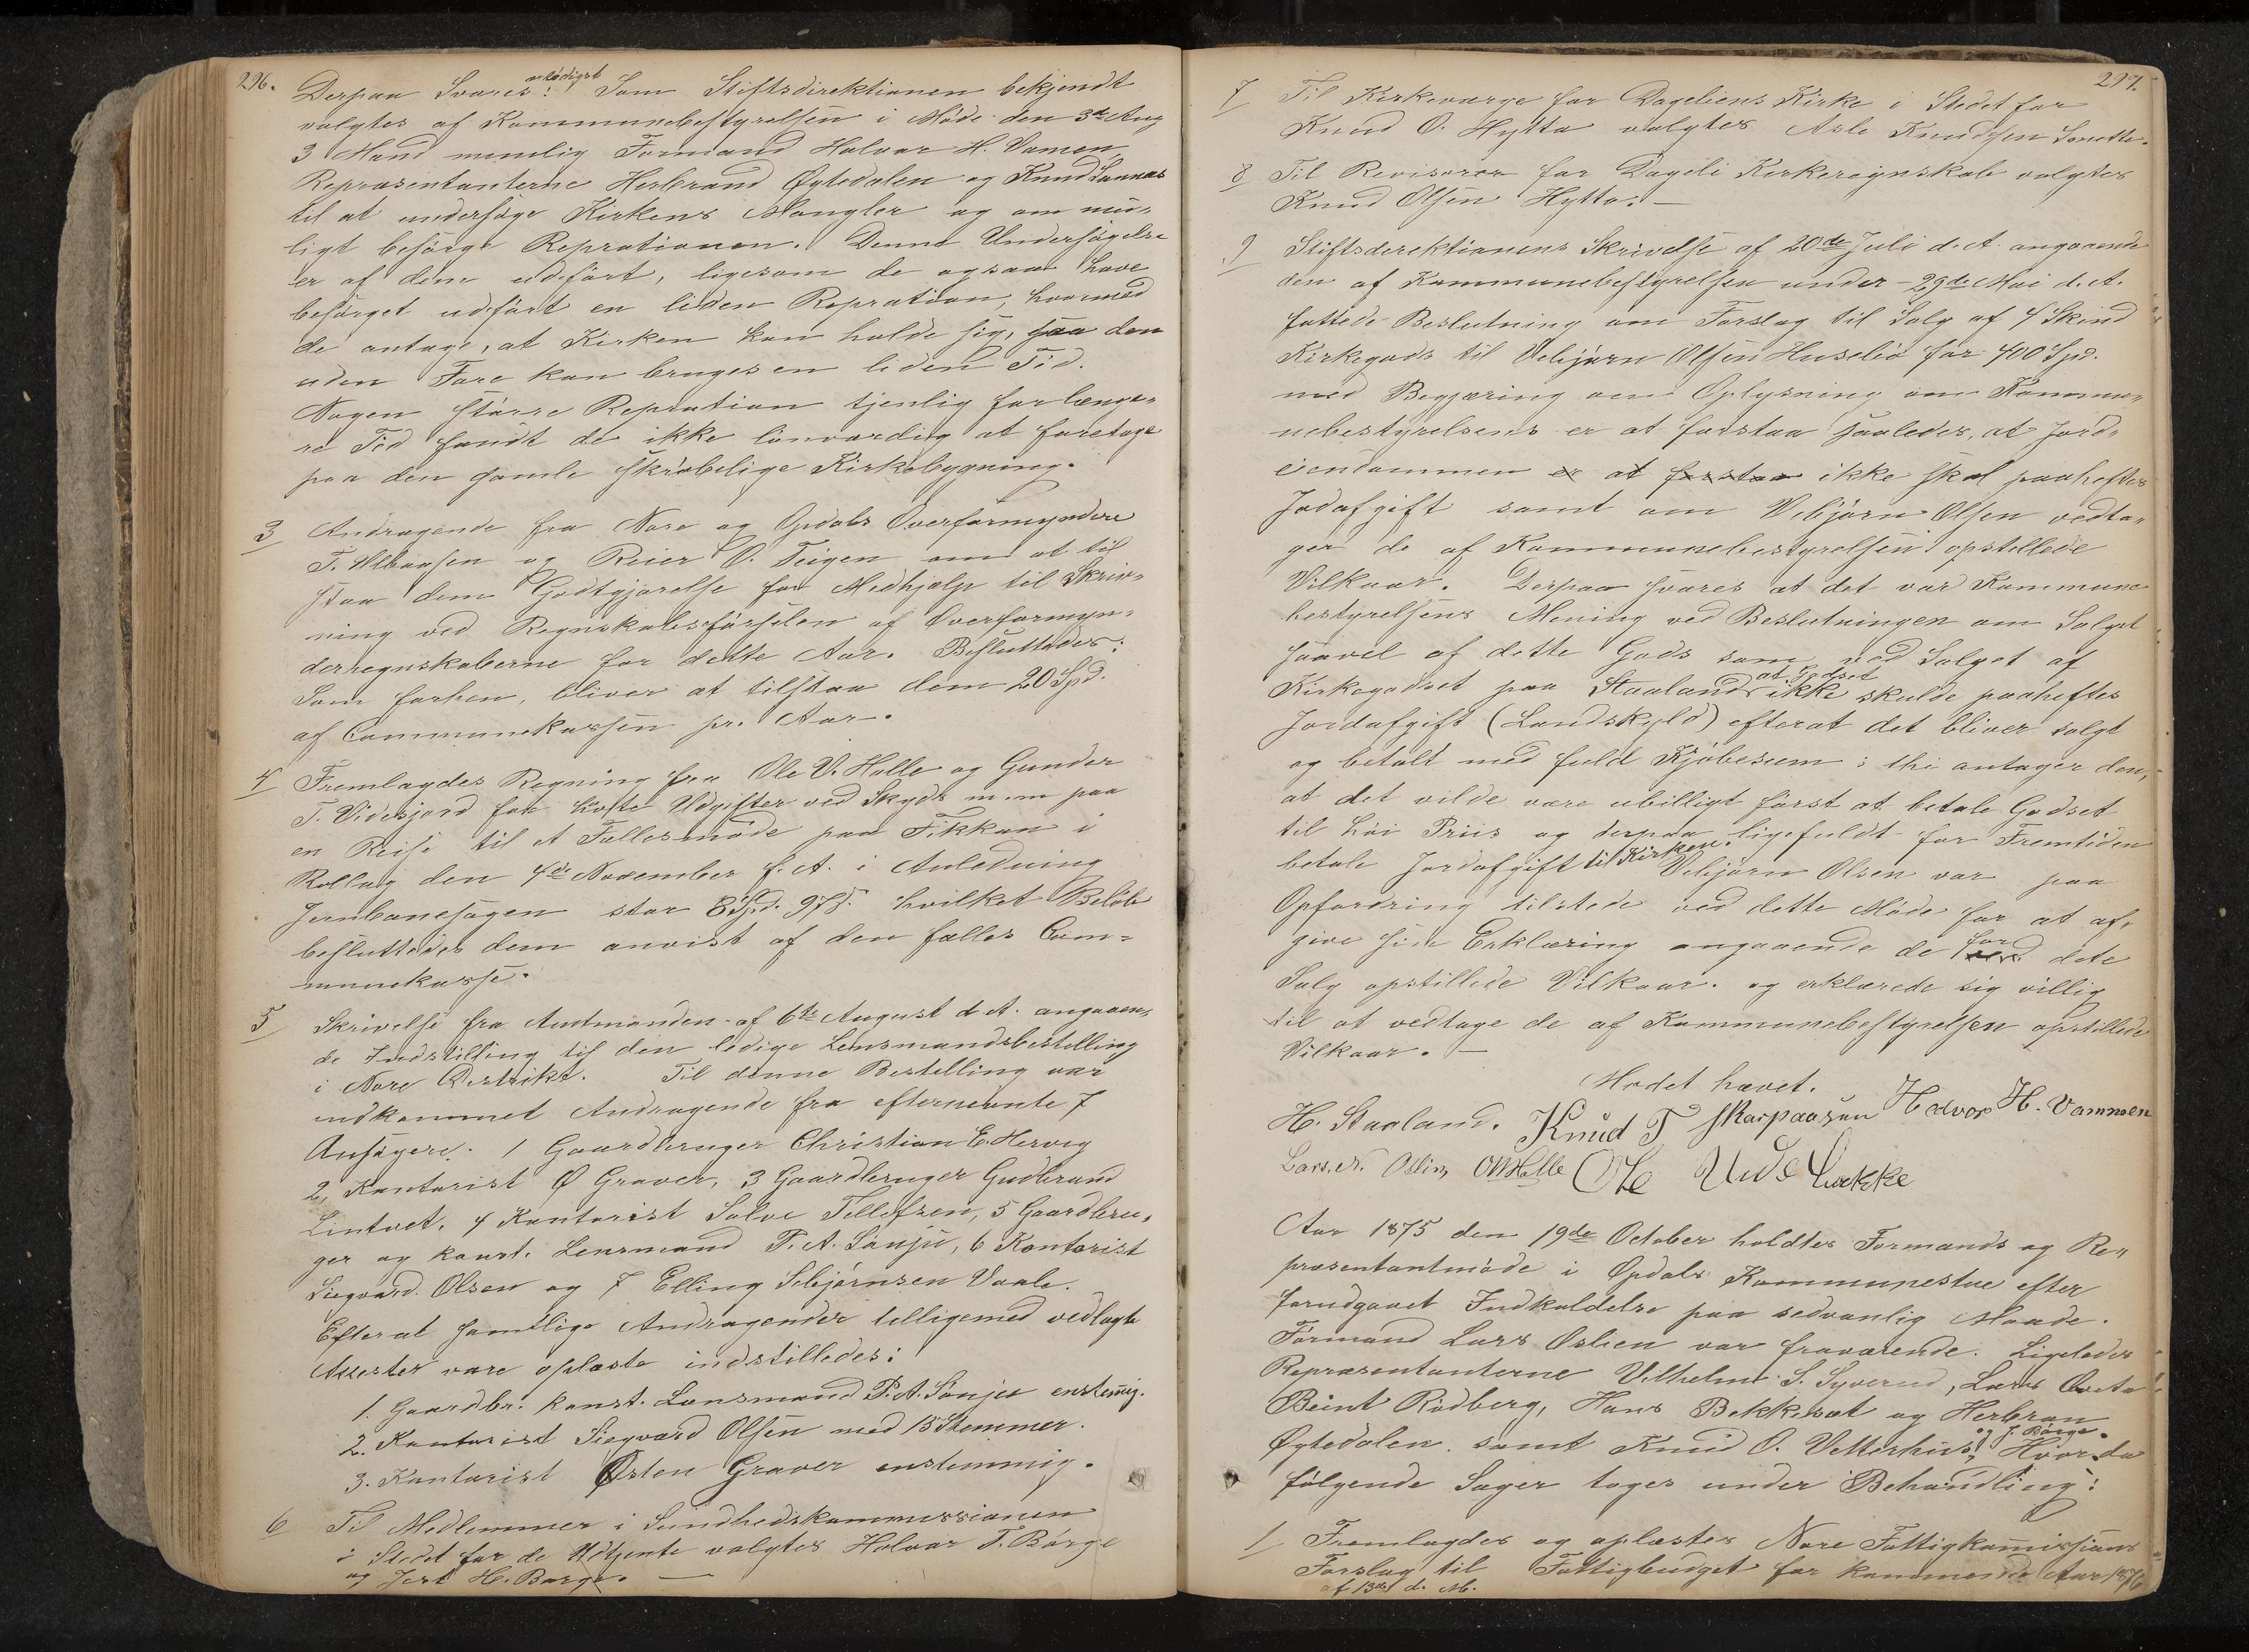 296.
Derpaa Svares ærbödigst: Som Stiftsdirektionen bekjendt
valgtes af Kommunebestyrelsen i Möde den 3de Aug
3 Mand nemlig Formand Halvor H. Vamen
Repræsentanterne Herbrand Øgtedalen og Knud Sønnæs
til at undersöge Kirkens Mangler og om mu-
ligt besörge Reprationen. Denne Undersögelse
er af dem udfört, ligesom de ogsaa have
besörget udfört en liden Repration, hvormed
de antage, at Kirken kan holde sig, saa den
uden Fare kan bruges en liden Tid.
Nogen större Repration tjenlig for længe-
re Tid fandt de ikke lönværdig at foretage
paa den gamle skröbelige Kirkebygning.
3 Andragende fra Nore og Opdals Overformyndere
T. Albansen og Reier O. Teigen om at til
staa dem Godtgjörelse for Medhjælp til Skriv-
ning ved Regnskabsförselen af Overformyn-
derregnskaberne for dette Aar. Besluttedes:
Som forhen, bliver at tilstaa dem 20 Spd.
af Communekassen pr. Aar.
4 Fremlagdes Regning fra Ole V. Halle og Gunder
T. Videsjord for hafte Udgifter ved Skyds m.m paa
en Reise til et Fællesmöde paa Fikkan i
Rollag den 4de November f. A. i Anledning
Jernbanesagen stor 8 Spd. 97 s. hvilket Belöb
besluttedes dem anvist af den fælles Com-
munekasse.
5 Skrivelse fra Amtmanden af 6te August d. A. angaaen-
de Indstilling til den ledige Lensmandsbestilling
i Nore Distrikt. Til denne Bestilling var
indkommet Andragende fra efternevnte 7
Ansögere. 1 Gaardbruger Christian E. Hervig
2, Kontorist Ø Graver, 3 Gaardbruger Gudbrand
Lintvet, 4 Kontorist Salve Tellefsen, 5 Gaardbru-
ger og konst. Lensmand P. A. Sönju, 6 Kontorist
Siegvard Olsen og 7 Elling Sebjörnsen Vaale.
Efter at samtlige Andragender tilligemed vedlagte
Attester vare oplæste indstilledes:
1. Gaardbr. konst. Lensmand P. A. Sönju enstemig.
2. Kontorist Siegvard Olsen med 15 Stemmer.
3. Kontorist Østen Graver enstemmig.
6 Til Medlemmer i Sundhedskommissionen
i Stedet for de Udtjente valgtes Halvor T. Börge
og Jert H. Børge.
297.
7 Til Kirkeværge for Dageliens Kirke i Stedet for
Knud O. Hytta valgtes Asle Knudsen
8 Til Revisorer for Dageli Kirkeregnskab valgtes
Knud Olsen Hytta.
9 Stiftsdirektionens Skrivelse af 20de Juli d. A. angaaende
den af Kommunebestyrelsen under 29de Mai d. A.
fattede Beslutning om Forslag til Salg af 4 Skind
Kirkegods til Vebjörn Olsen Huseliö for 400 Spd.
med Begjæring om Oplysning om Kommu-
nebestyrelsens er at forstaa saaledes, at Jord-
eiendommen er at forstaa ikke skal paaheftes
Jodafgift samt om Vebjörn Olsen vedta-
ger de af Kommunebestyrelsen opstillede
Vilkaar. Derpaa svares at det var Kommune
bestyrelsens Mening ved Beslutningen om Salget
saavel af dette Gods som ved Salget af
Kirkegodset paa Staaland at Godset ikke skulde paaheftes
Jordafgift (Landskyld) efterat det bliver solgt
og betalt med fuld Kjöbesum; thi antager den,
at det vilde være ubilligt först at betale Godset
til höi Priis og derpaa ligefuldt for Fremtiden
betale Jordafgift til Kirken. Vebjörn Olsen var paa
Opfordring tilstede ved dette Möde for at af-
give sin Erklæring angaaende de for ved dete
Salg opstillede Vilkaar. og erklærede sig villig
til at vedtage de af Kommunebestyrelsen opstillede
Vilkaar.
Mödet hævet.
H. Staaland. Knud T Skarpaasen Halvor H. Vammen
Lars. N. Oslin, OVHalle Ole Uvdelöekke
Aar 1875 den 19de October holdtes Formands og Re-
præsentantmöde i Opdals Kommunestue efter
forudgaaet Indkaldelse paa sedvanlig Maade.
Formand Lars Oslien var fraværende. Ligeledes
Repræsentanterne Vilhelm S. Syverud, Lars Qveta
Beint Rödberg, Hans Bekkesæt og Herbran
Øgtedalen. samt Knud O. Vetterhus, og J. Börge. Hvor da
fölgende Sager toges under Behandling:
1 Fremlagdes og oplæstes Nore Fattigkomissions
Forslag til Fattigbudget for kommende Aar 1876
af 13de d. M.